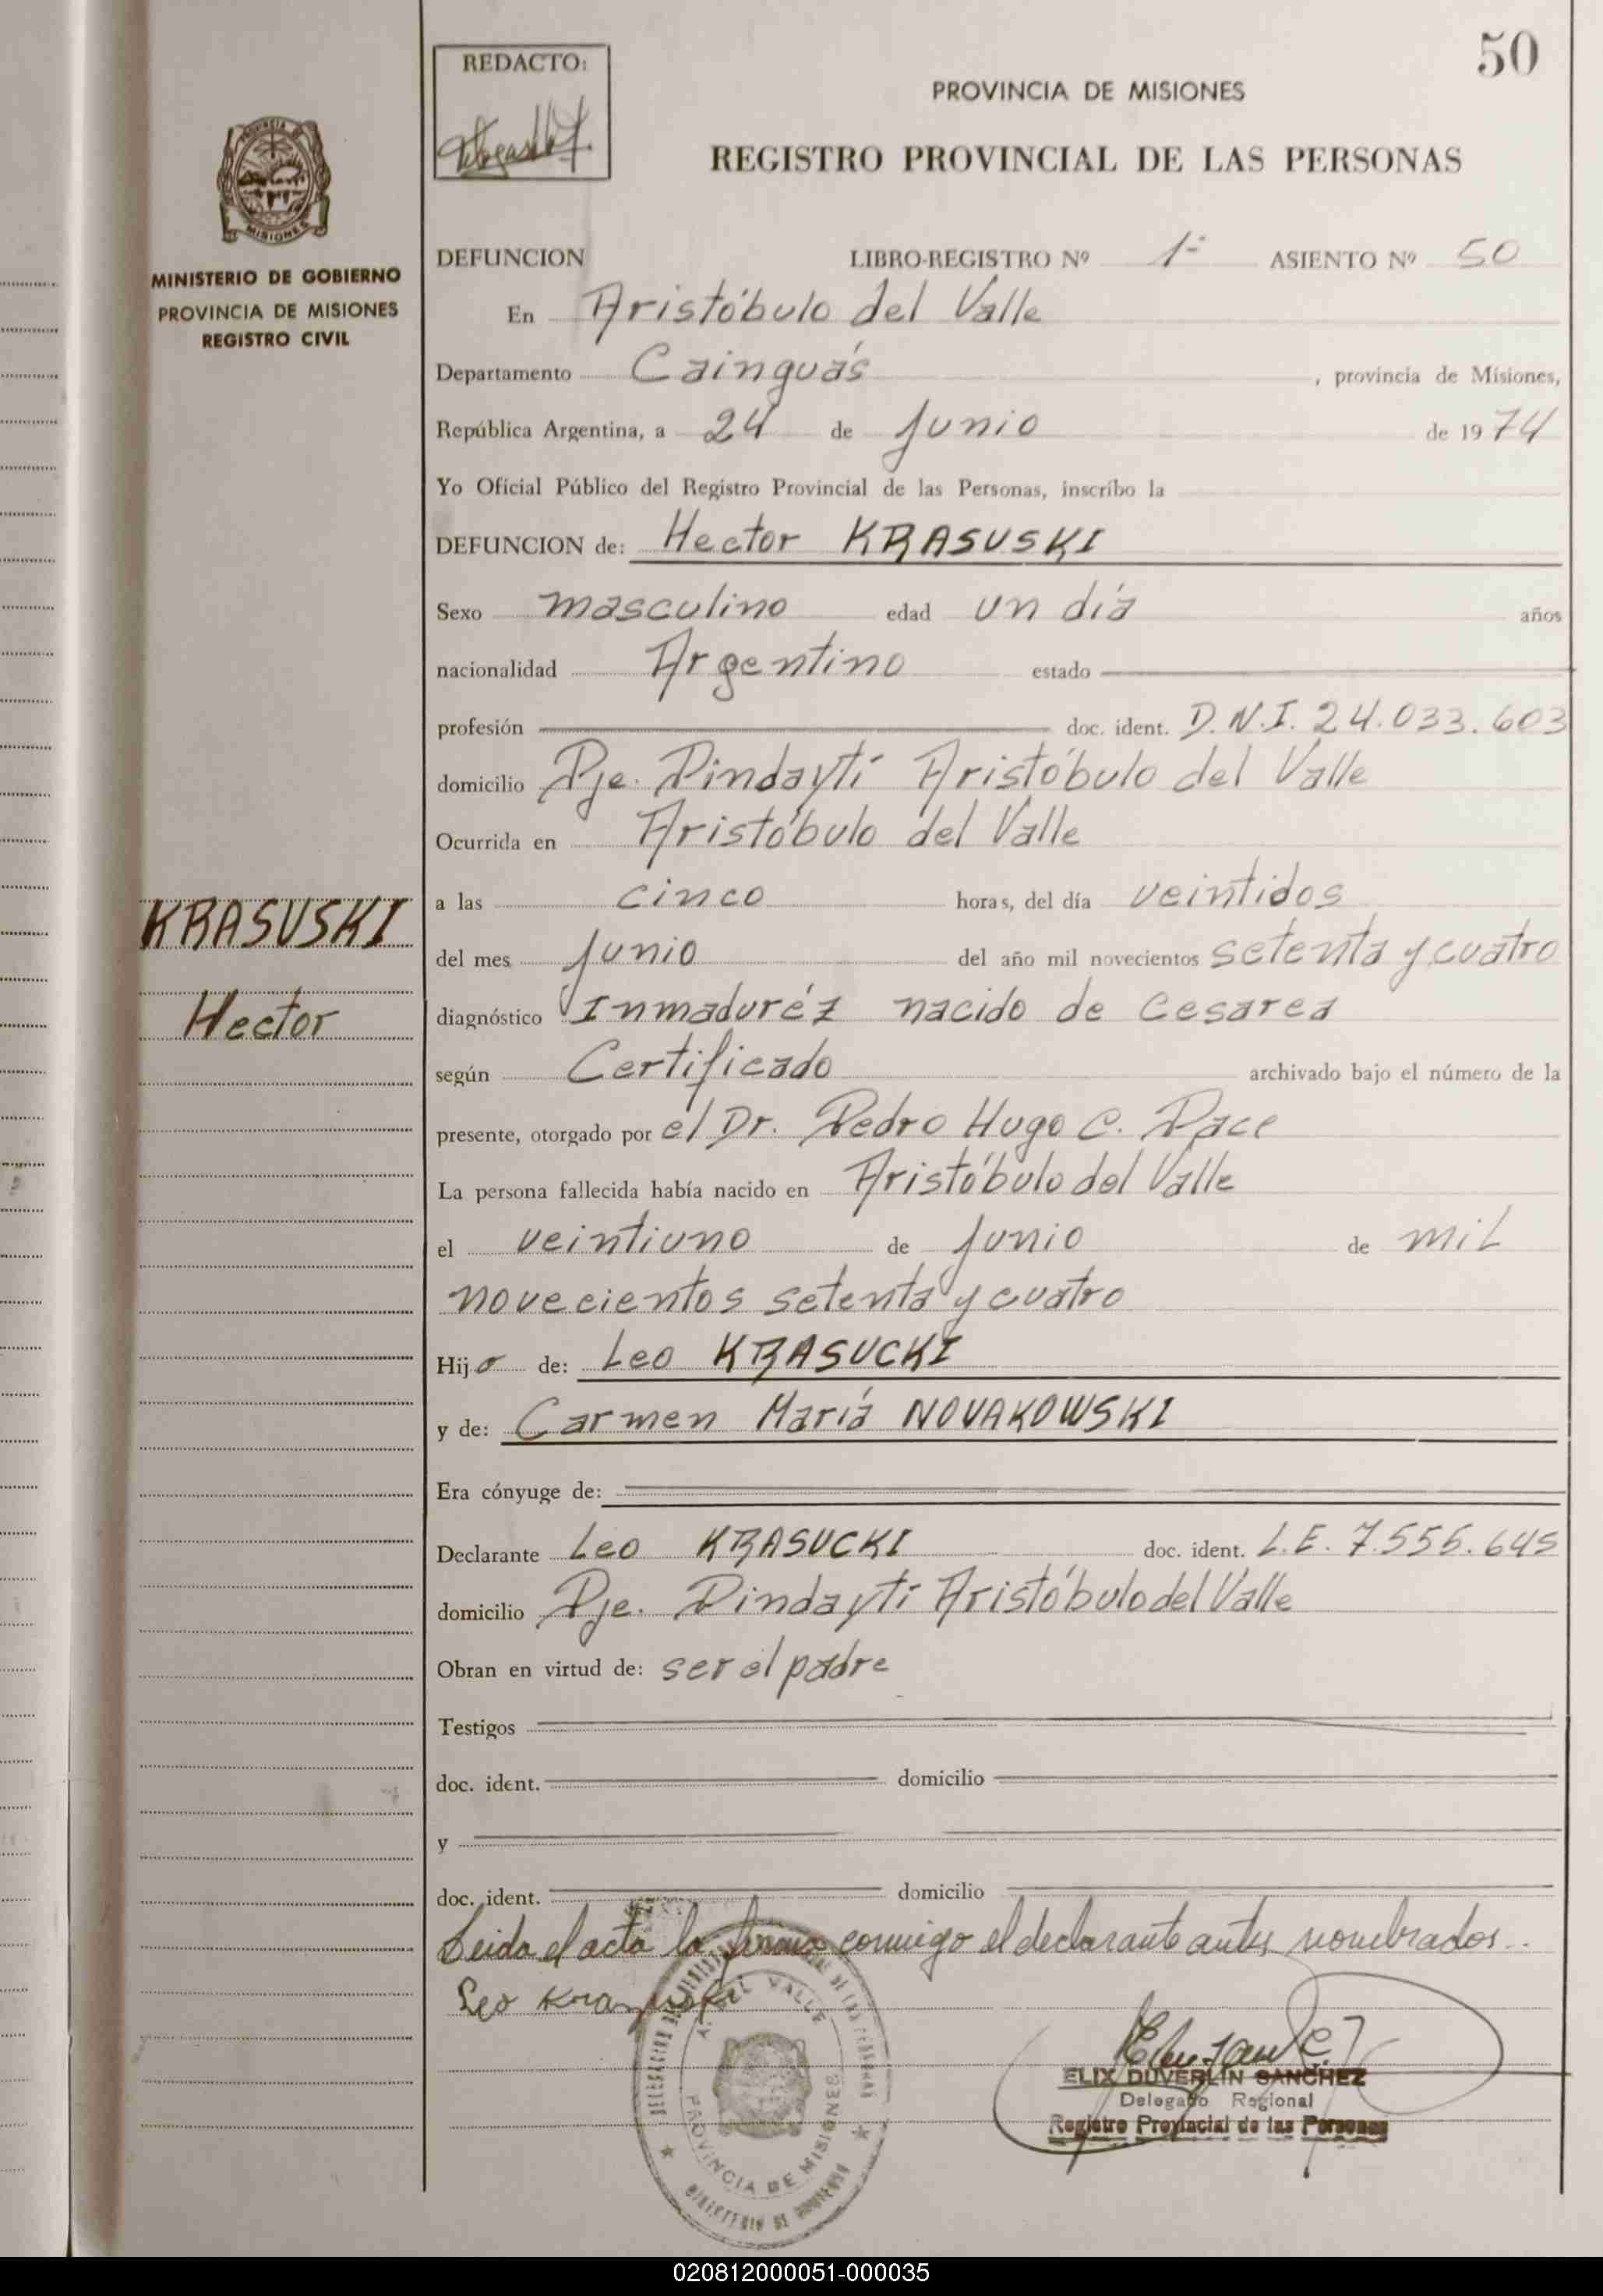 50
REDACTO:
PROVINCIA DE MISIONES
REGISTRO PROVINCIAL DE LAS PERSONAS
PROVINCIA DE
MISIONES
MINISTERIO DE GOBIERNO
PROVINCIA DE MISIONES
REGISTRO CIVIL
DEFUNCION LIBRO-REGISTRO Nº 1º ASIENTO Nº 50
En Aristóbulo del Valle
Departamento Cainguás, provincia de Misiones,
República Argentina, a 24 de Junio de 1974
Yo Oficial Público del Registro Provincial de las Personas, inscribo la
DEFUNCION de: Hector KRASUSKI
Sexo masculino edad un día años
nacionalidad Argentino estado
profesión doc. ident. D.N.I. 24.033.603
domicilio Pje. Pindaytí Aristóbulo del Valle
Ocurrida en Aristóbulo del Valle
a las cinco horas, del día veintidos
del mes Junio del año mil novecientos setenta y cuatro
diagnóstico Inmaduréz nacido de Cesarea
según Certificado archivado bajo el número de la
presente, otorgado por el Dr. Pedro Hugo C. Pace
La persona fallecida había nacido en Aristóbulo del Valle
el veintiuno de Junio de mil
novecientos setenta y cuatro
Hijo de: Leo KRASUCKI
y de: Carmen Mariá NOVAKOWSKI
Era cónyuge de:
Declarante Leo KRASUCKI doc. ident. L.E. 7.556.645
domicilio Pje. Pindaytí Aristóbulo del Valle
Obran en virtud de: ser el padre
Testigos
doc. ident. domicilio
y
doc. ident. domicilio
Leida el acta la firma conmigo el declarante antes nombrados..
KRASUSKI
Hector
Leo
A. DEL VALLE
PROVINCIA DE MISIONES
MINISTERIO DE GOBIERNO
ELIX DUVERLIN SANCHEZ
Delegado Regional
Registro Provincial de las Personas
020812000051-000035